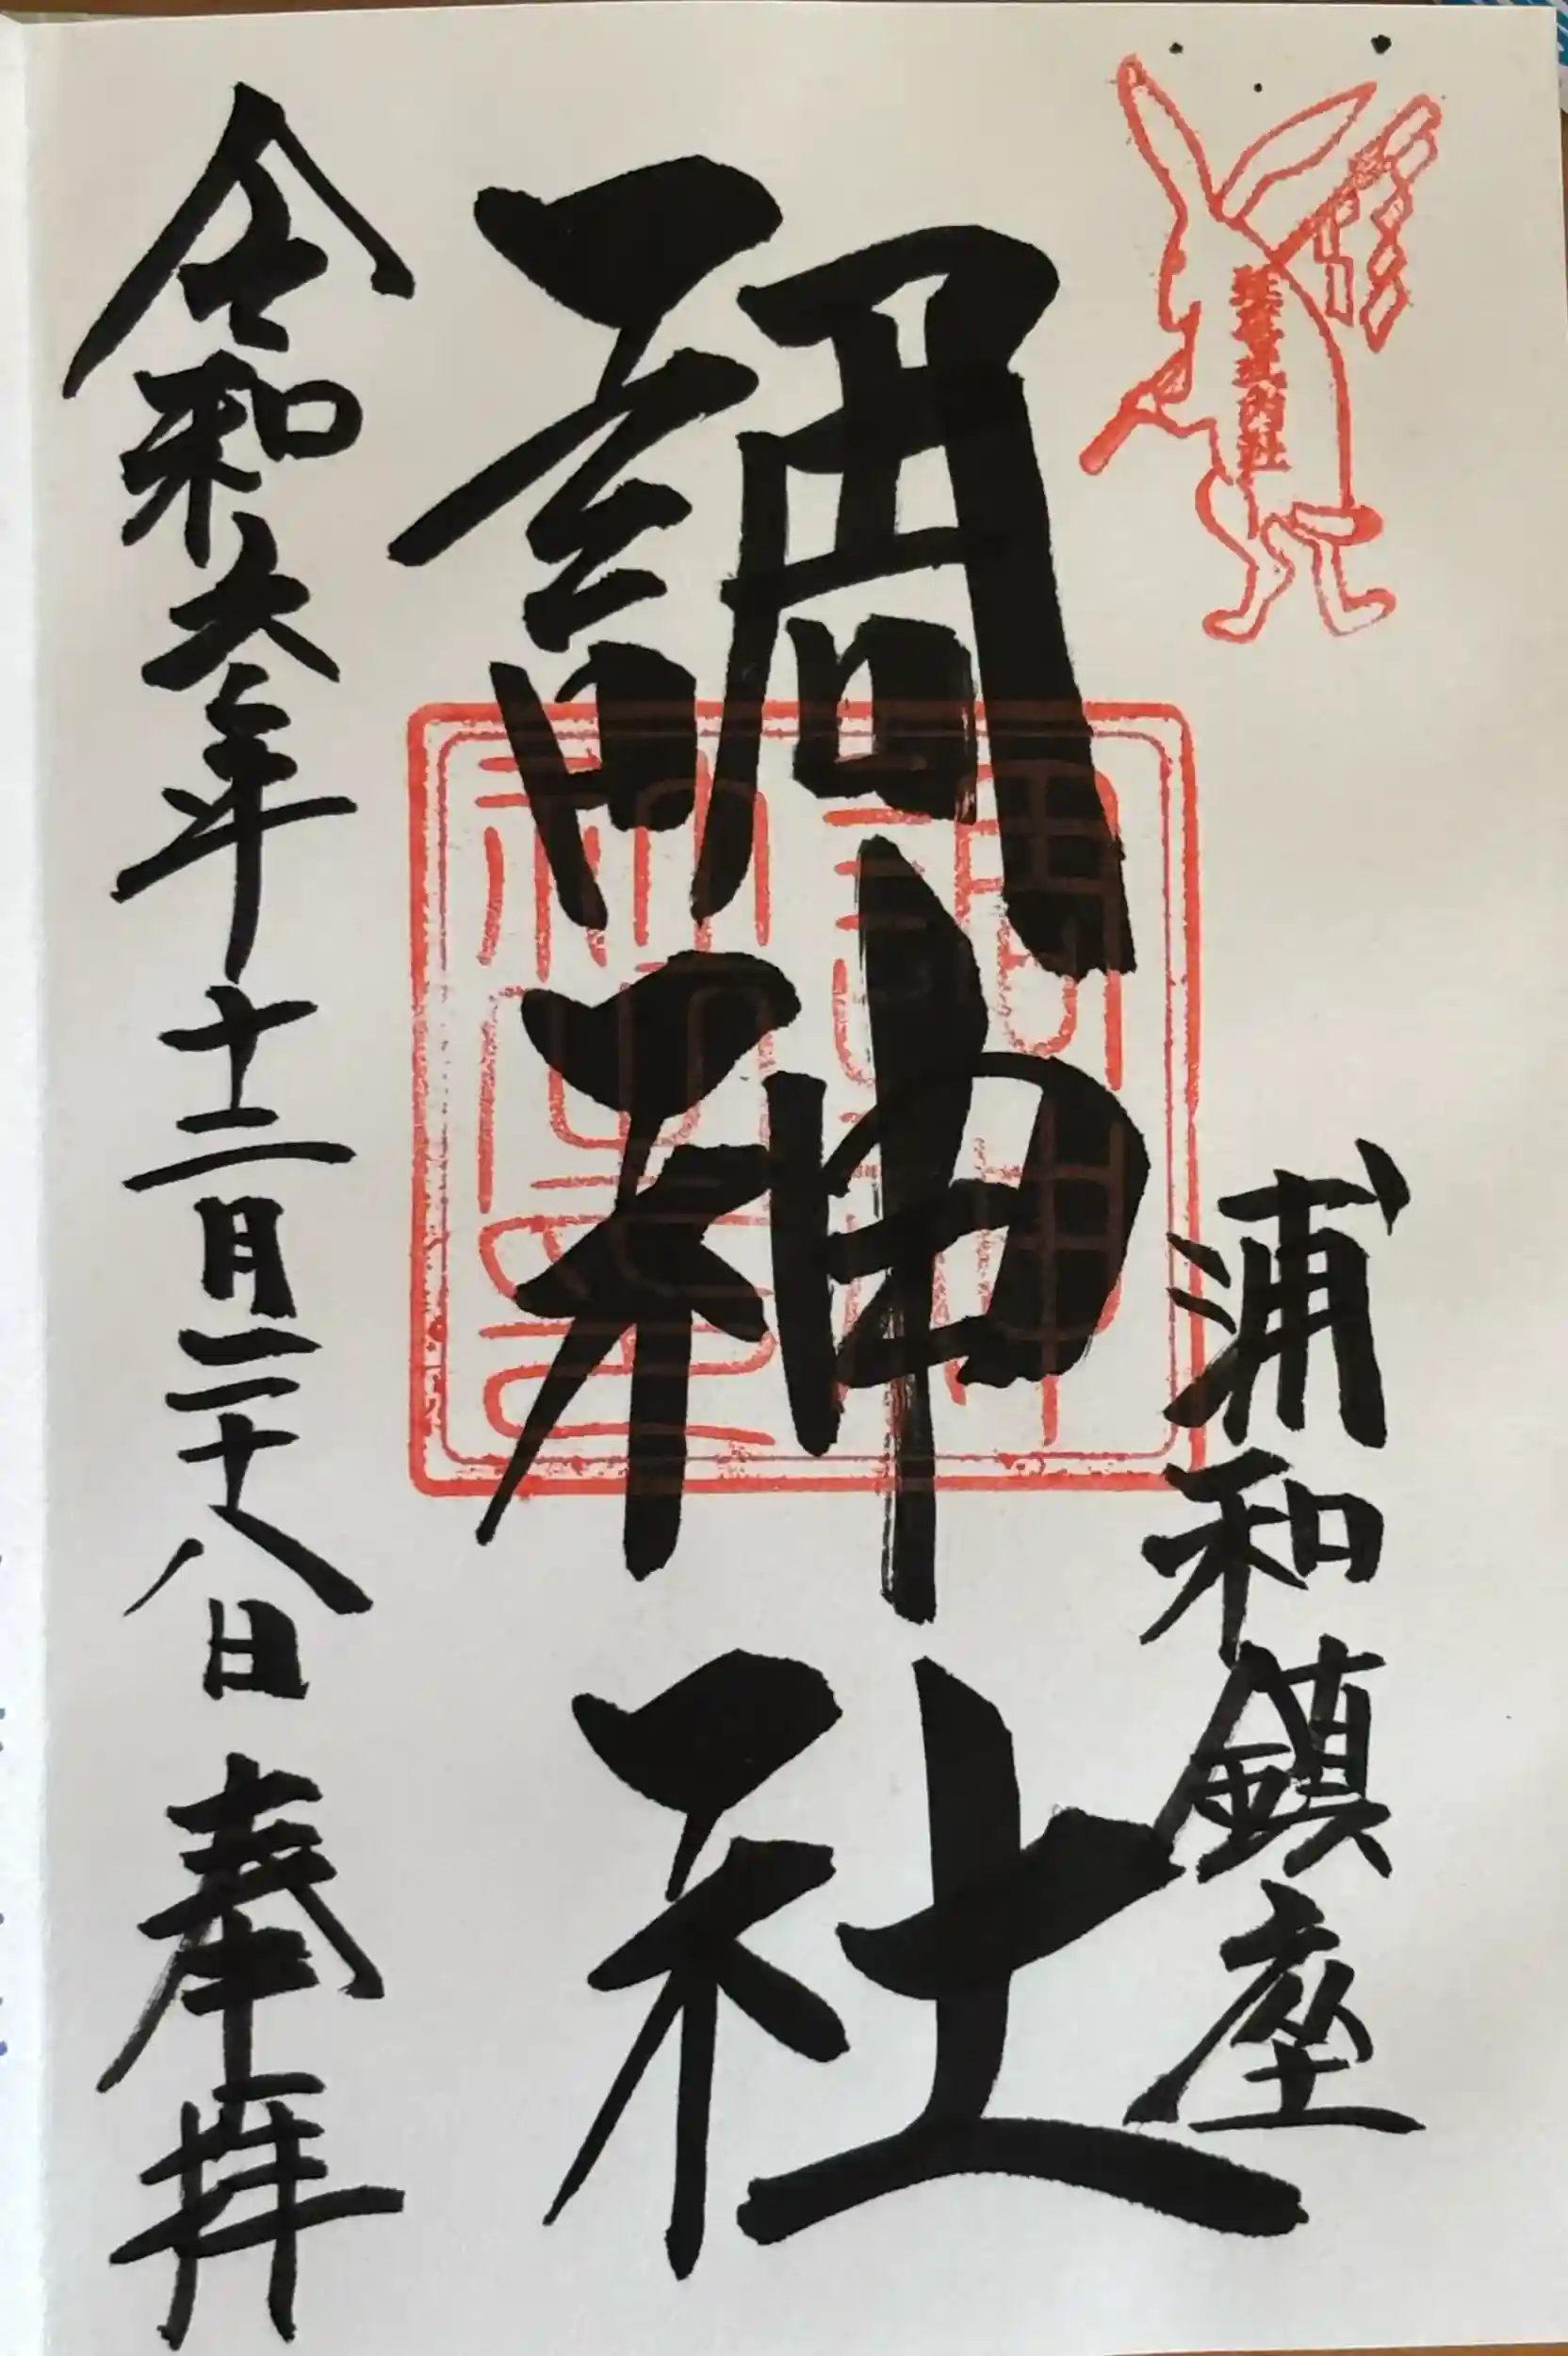 浦和鎮座
調神社
令和六年十二月二十八日 奉拝